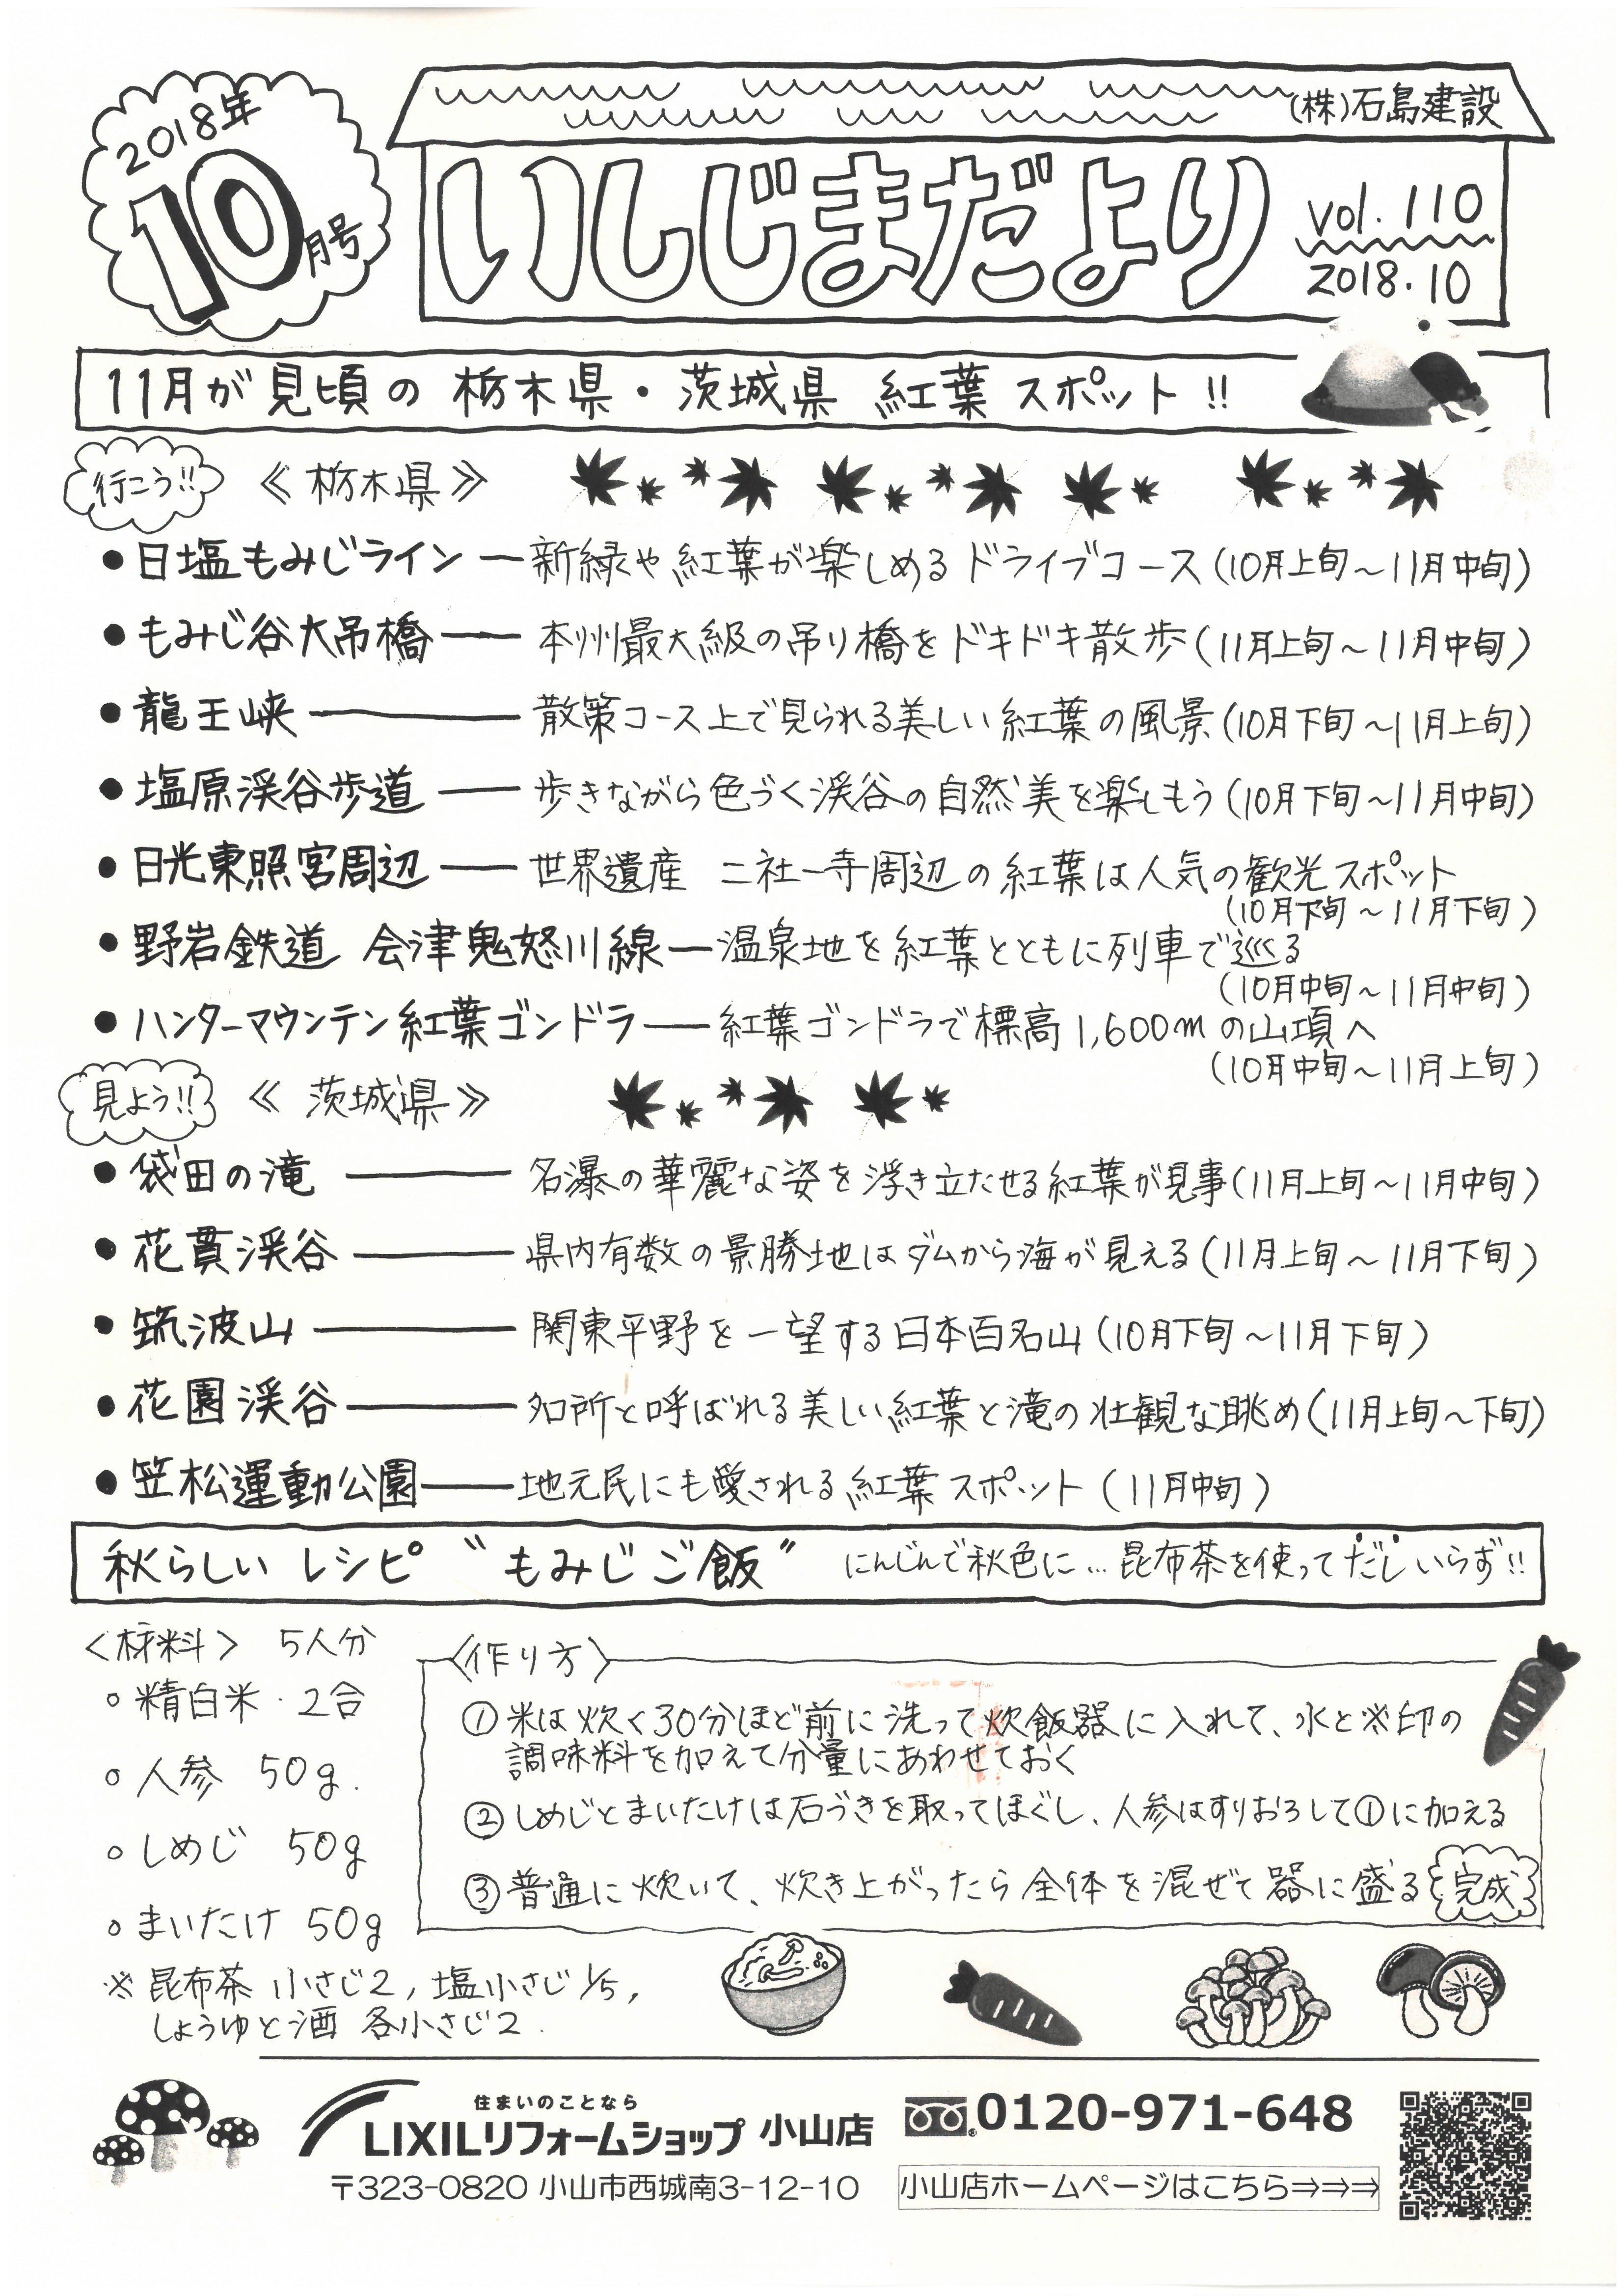 2018年
10月号
(株)石島建設
いしじまだより
vol.110
2018.10
11月が見頃の 栃木県・茨城県 紅葉スポット!!
行こう!! 《栃木県》
●日塩もみじライン — 新緑や紅葉が楽しめるドライブコース(10月上旬〜11月中旬)
●もみじ谷大吊橋 — 本州最大級の吊り橋をドキドキ散歩(11月上旬〜11月中旬)
●龍王峡 — 散策コース上で見られる美しい紅葉の風景(10月下旬〜11月上旬)
●塩原渓谷歩道 — 歩きながら色づく渓谷の自然美を楽しもう(10月下旬〜11月中旬)
●日光東照宮周辺 — 世界遺産 二社一寺周辺の紅葉は人気の観光スポット
(10月下旬〜11月下旬)
●野岩鉄道 会津鬼怒川線 — 温泉地を紅葉とともに列車で巡る
(10月中旬〜11月中旬)
●ハンターマウンテン紅葉ゴンドラ — 紅葉ゴンドラで標高1,600mの山頂へ
(10月中旬〜11月上旬)
見よう!! 《茨城県》
●袋田の滝 — 名瀑の華麗な姿を浮き立たせる紅葉が見事(11月上旬〜11月中旬)
●花貫渓谷 — 県内有数の景勝地はダムから海が見える(11月上旬〜11月下旬)
●筑波山 — 関東平野を一望する日本百名山(10月下旬〜11月下旬)
●花園渓谷 — 名所と呼ばれる美しい紅葉と滝の壮観な眺め(11月上旬〜下旬)
●笠松運動公園 — 地元民にも愛される紅葉スポット(11月中旬)
秋らしい レシピ "もみじご飯" にんじんで秋色に…昆布茶を使ってだしいらず!!
〈材料〉 5人分
○精白米・2合
○人参 50g.
○しめじ 50g
○まいたけ 50g
※昆布茶 小さじ2, 塩小さじ1/5,
しょうゆと酒 各小さじ2.
〈作り方〉
①米は炊く30分ほど前に洗って炊飯器に入れて、水と※印の
調味料を加えて分量にあわせておく
②しめじとまいたけは石づきを取ってほぐし、人参はすりおろして①に加える
③普通に炊いて、炊き上がったら全体を混ぜて器に盛る 完成
住まいのことなら
LIXILリフォームショップ 小山店
0120-971-648
〒323-0820 小山市西城南3-12-10
小山店ホームページはこちら⇒⇒⇒